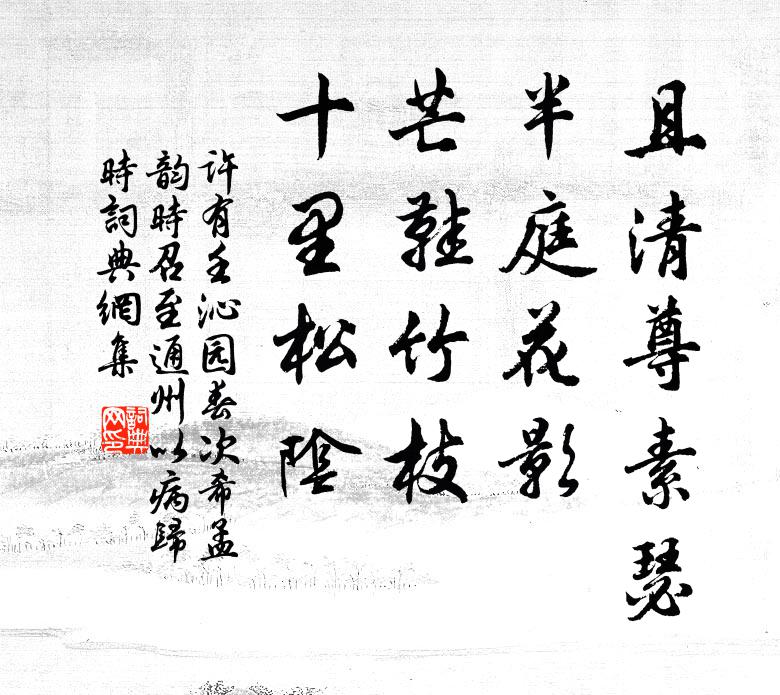 且清尊素瑟
半庭花影
芒鞋竹枝
十里松陰
许有壬沁园春次希孟
韵時召至通州以病歸
時詞典網集
詞典网印